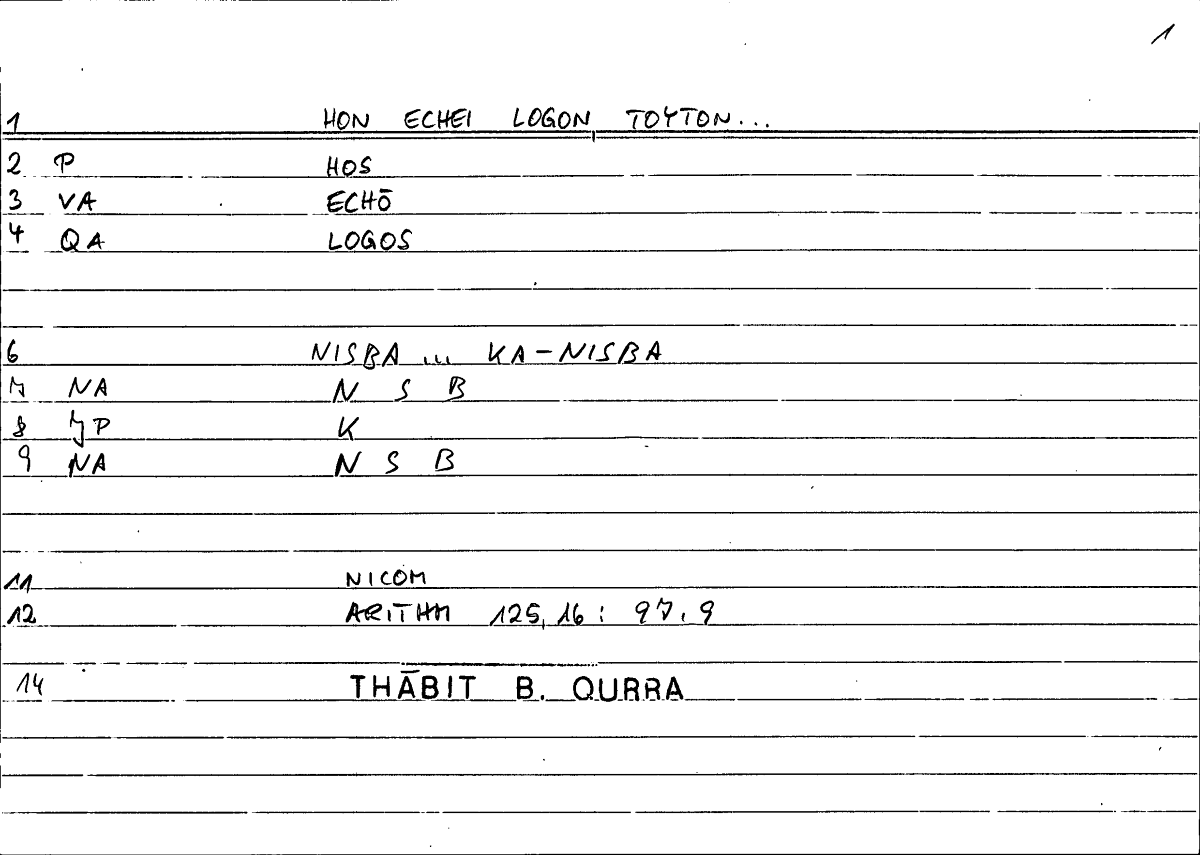 1
1 HON ECHEI LOGON TOYTON...
2 P HOS
3 VA ECHŌ
4 QA LOGOS
6 NISBA ... KA-NISBA
7 NA N S B
8 JP K
9 NA N S B
11 NICOM
12 ARITHM 125,16 : 97.9
14 THĀBIT B. QURRA